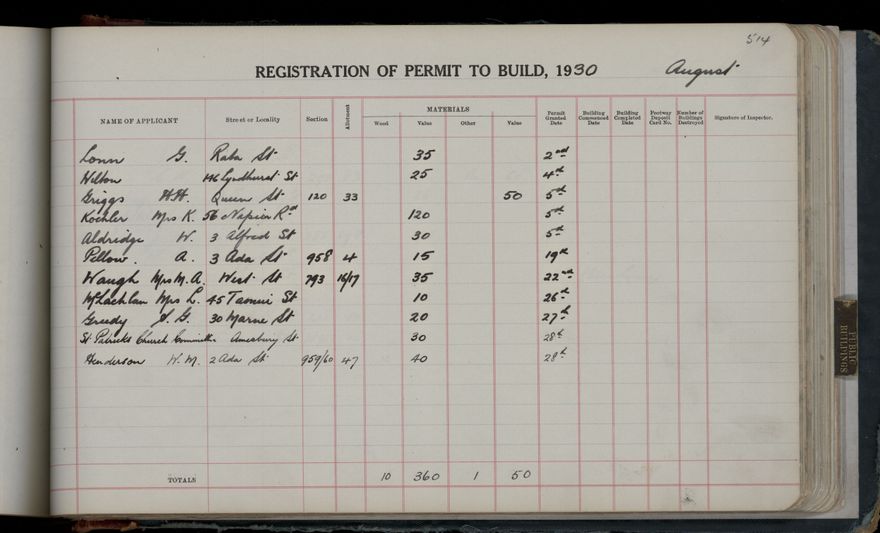 514
REGISTRATION OF PERMIT TO BUILD, 1930 August
MATERIALS
NAME OF APPLICANT Street or Locality Section Allotment Wood Value Other Value Permit Granted Date Building Commenced Date Building Completed Date Footway Deposit Card No. Number of Buildings Destroyed Signature of Inspector.
Lonn G. Rata St 35 2nd
Wilton 146 Lyndhurst St 25 4th
Griggs H.H. Queen St 120 33 50 5th
Koehler Mrs K. 56 Napier Rd 120 5th
Aldridge W. 3 Alfred St 30 5th
Pellow. A. 3 Ada St 958 4 15 19th
Waugh Mrs M.A. West St 793 16/17 35 22nd
McLachlan Mrs L. 45 Tainui St 10 26th
Greedy S.G. 30 Marne St 20 27th
St Patricks Church Committee Amesbury St 30 28th
Henderson W.M. 2 Ada St 959/60 47 40 28th
TOTALS 10 360 1 50
PUBLIC BUILDINGS